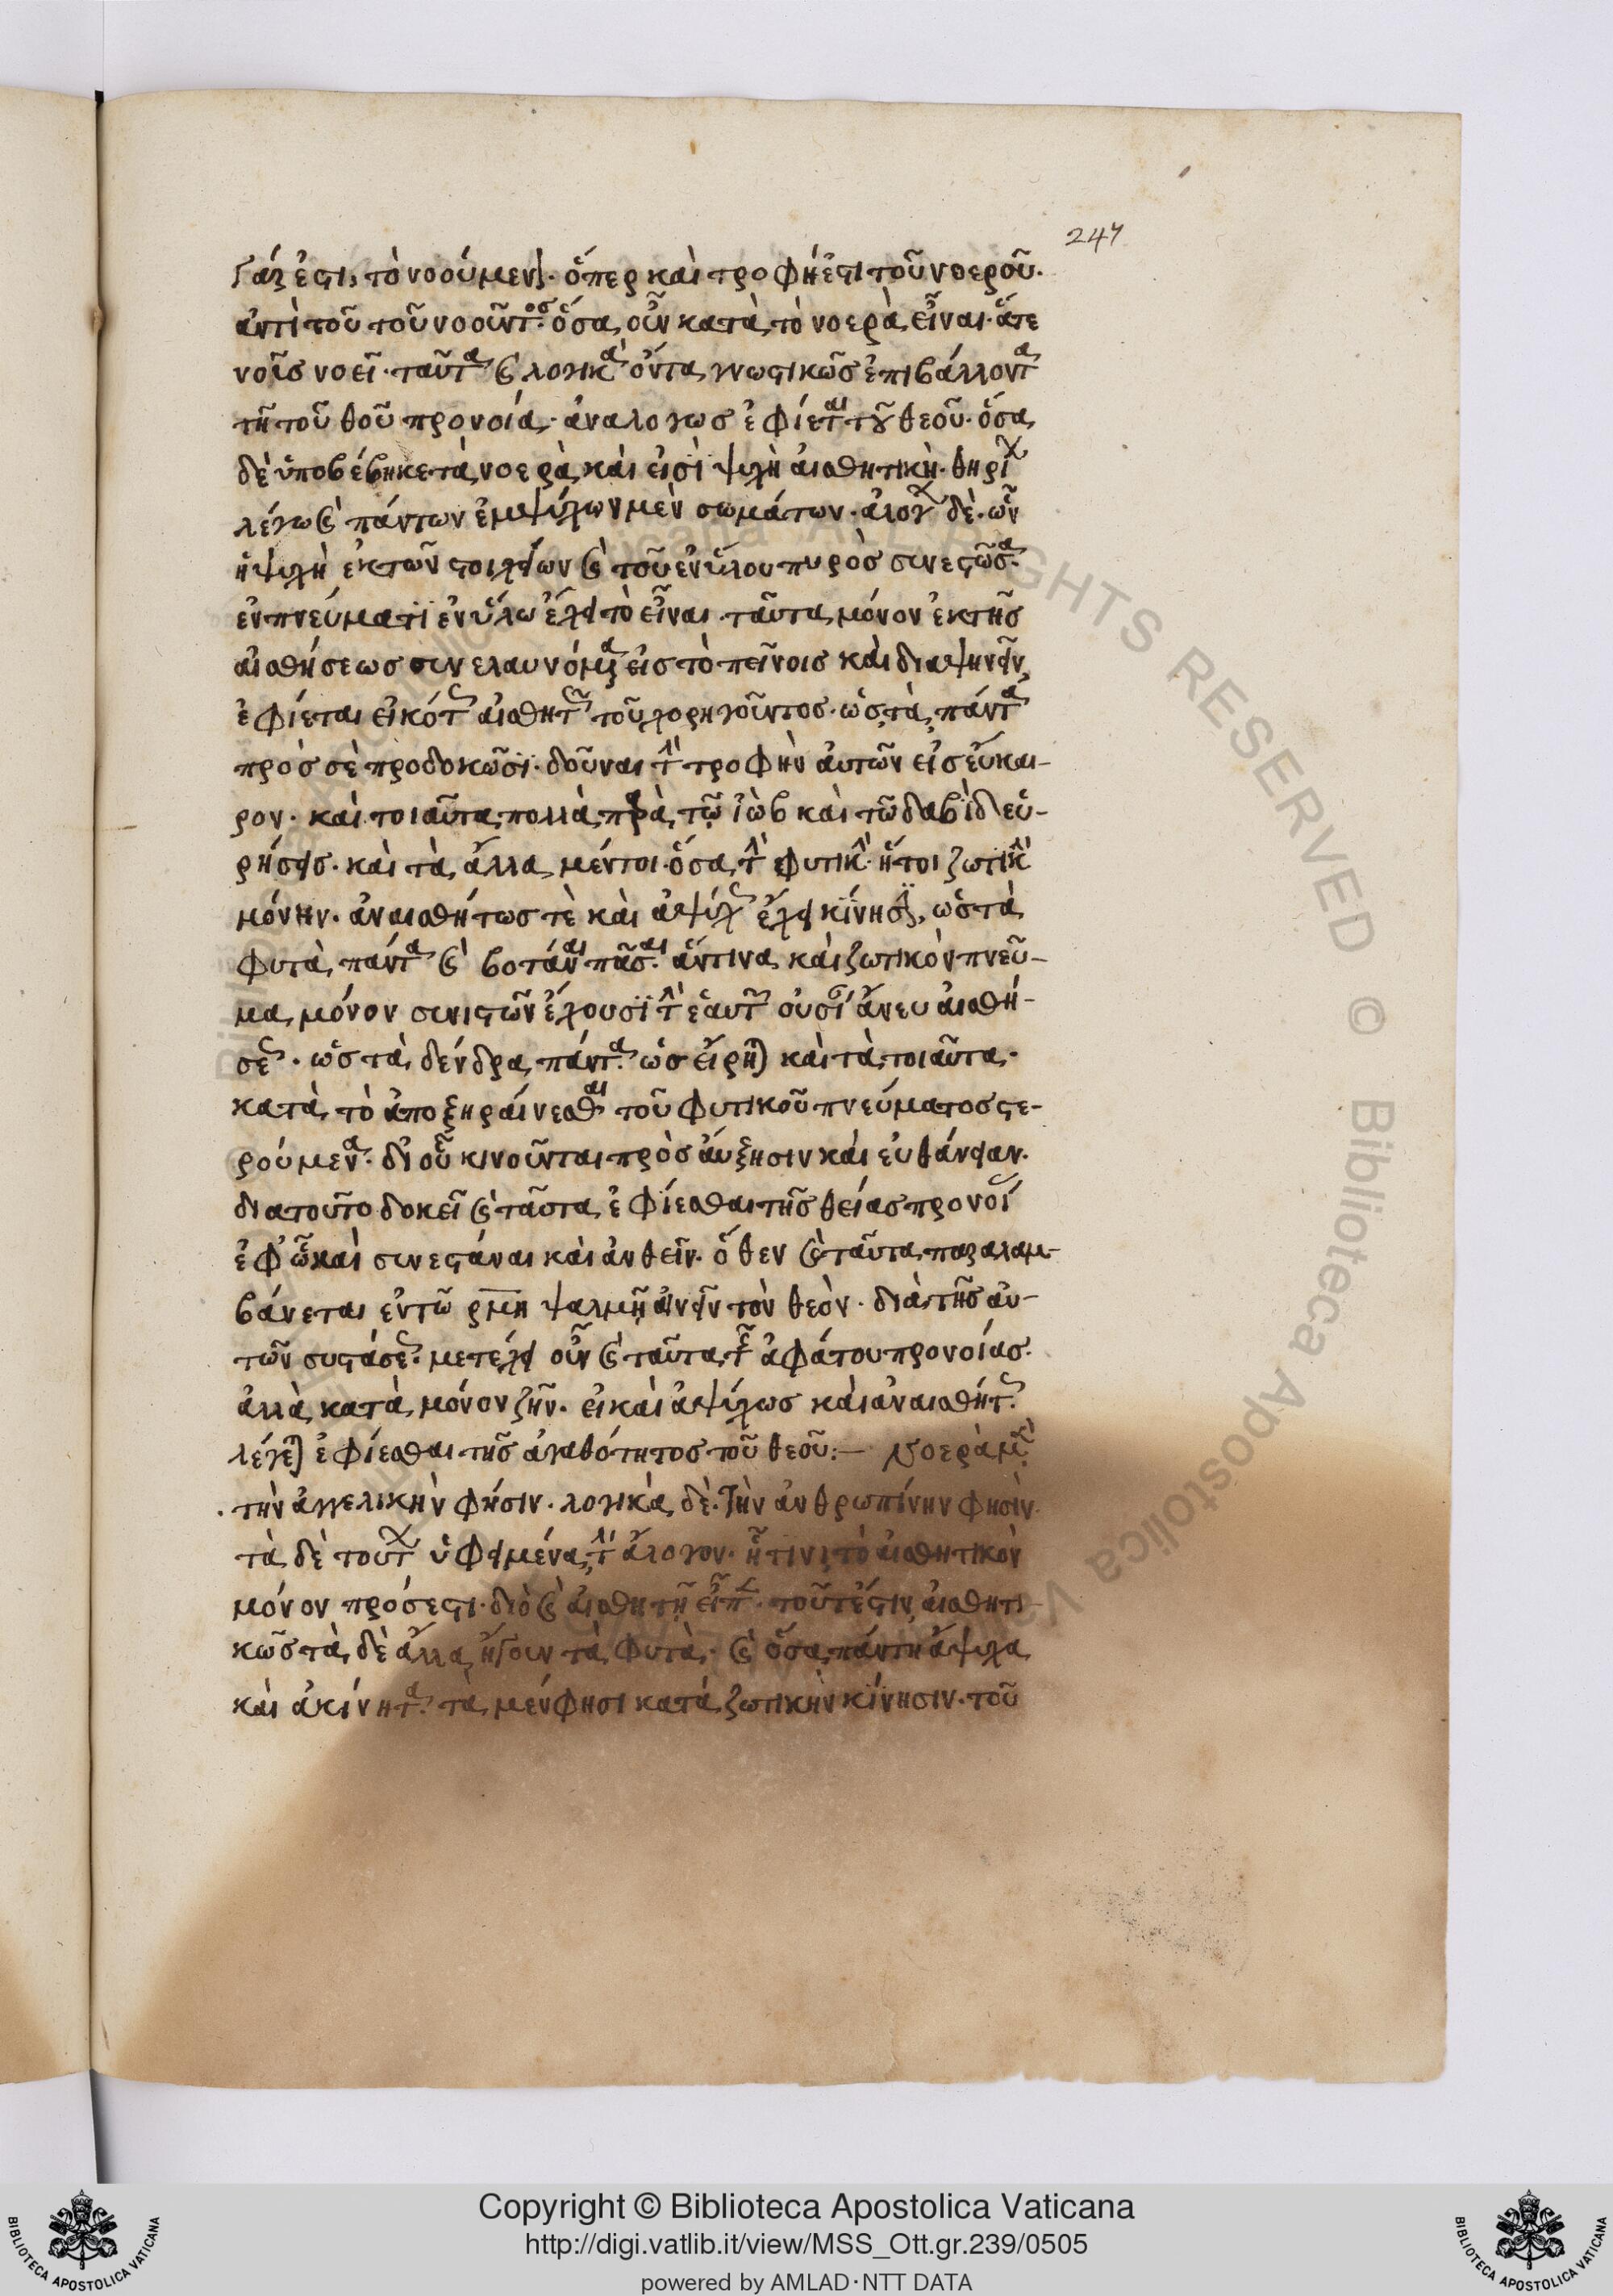 247
γάρ ἐστι, τὸ νοούμενον. ὅπερ καὶ τροφή ἐστι τοῦ νοεροῦ.
ἀντὶ τοῦ τοῦ νοοῦντος. ὅσα οὖν κατὰ τὸ νοερὰ εἶναι. ἅτε
νοῦς νοεῖ. ταῦτα καὶ λογικὰ ὄντα γνωστικῶς ἐπιβάλλοντα
τῆ τοῦ θεοῦ προνοία. ἀναλόγως ἐφίεται τοῦ θεοῦ. ὅσα
δὲ ὑποβέβηκε τὰ νοερὰ καὶ εἰσὶ ψυχὴ αἰσθητικὴ.
λέγω καὶ πάντων ἐμψύχων μὲν σωμάτων. ἀλόγων δὲ. ὧν
ἡ ψυχὴ ἐκ τῶν στοιχείων καὶ τοῦ ἐνύλου πυρὸς συνεστῶσα.
ἐν πνεύματι ἐνύλω ἔχει τὸ εἶναι. ταῦτα μόνον ἐκ τῆς
αἰσθήσεως συνελαυνόμενα εἰς τὸ
ἐφίεται εἰκότως αἰσθητῶς τοῦ χορηγοῦντος. ὡς τὰ πάντα
πρὸς σὲ προσδοκῶσι. δοῦναι τὴν τροφὴν αὐτῶν εἰς εὔκαι-
ρον. καὶ τοιαῦτα πολλὰ παρὰ τῶ ἰὼβ καὶ τῶ δαβὶδ εὑ-
ρήσεις. καὶ τὰ ἄλλα μέντοι. ὅσα τὴν φυτικὴν. ἤτοι ζωτικὴν
μόνην. ἀναισθήτως τὲ καὶ ἀψύχως ἔχει κίνησιν, ὡς τὰ
φυτὰ πάντα καὶ βοτάναι πᾶσαι. ἅντινα καὶ ζωτικὸν πνεῦ-
μα μόνον συνιστῶν ἔχουσι τὴν ἑαυτῶν οὐσίαν ἄνευ αἰσθή-
σεως. ὡς τὰ δένδρα πάντα. ὡς εἴρηται καὶ τὰ τοιαῦτα.
κατὰ τὸ ἀποξηραίνεσθαι τοῦ φυτικοῦ πνεύματος στε-
ρούμενα. δι οὗ κινοῦνται πρὸς αὔξησιν καὶ εὐθάνειαν.
διατοῦτο δοκεῖ καὶ ταῦτα ἐφίεσθαι τῆς θείας προνοίας
ἐφ ὧ καὶ συνεστάναι καὶ ἀνθεῖν. ὅθεν καὶ ταῦτα παραλαμ-
βάνεται ἐν τῶ ρμη ψαλμῶ αἰνεῖν τὸν θεὸν. διὰ τῆς αὐ-
τῶν συστάσεως. μετέχει οὖν καὶ ταῦτα τῆς ἀφάτου προνοίας.
ἀλλὰ κατὰ μόνον ζῆν. εἰ καὶ ἀψύχως καὶ ἀναισθήτως.
λέγεται ἐφίεσθαι τῆς ἀγαθότητος τοῦ θεοῦ:— Νοερὰ μὲν
τὴν ἀγγελικὴν φήσιν. λογικὰ δὲ. τὴν ἀνθρωπίνην φησὶν.
τὰ δὲ τούτων ὑφειμένα, τὴν ἄλογον. ἧ τινι τὸ αἰσθητικὸν
μόνον πρόσεστι. διὸ καὶ αἰσθητῆ εἶπεν. τοῦτέστιν, αἰσθητι-
κῶς τὰ δὲ ἄλλα, ἤγουν τὰ φυτὰ. καὶ ὅσα πάντη ἄψυχα
καὶ ἀκίνητα. τὰ μέν φησι κατὰ ζωτικὴν κίνησιν. τοῦ
Copyright © Biblioteca Apostolica Vaticana
http://digi.vatlib.it/view/MSS_Ott.gr.239/0505
powered by AMLAD·NTT DATA